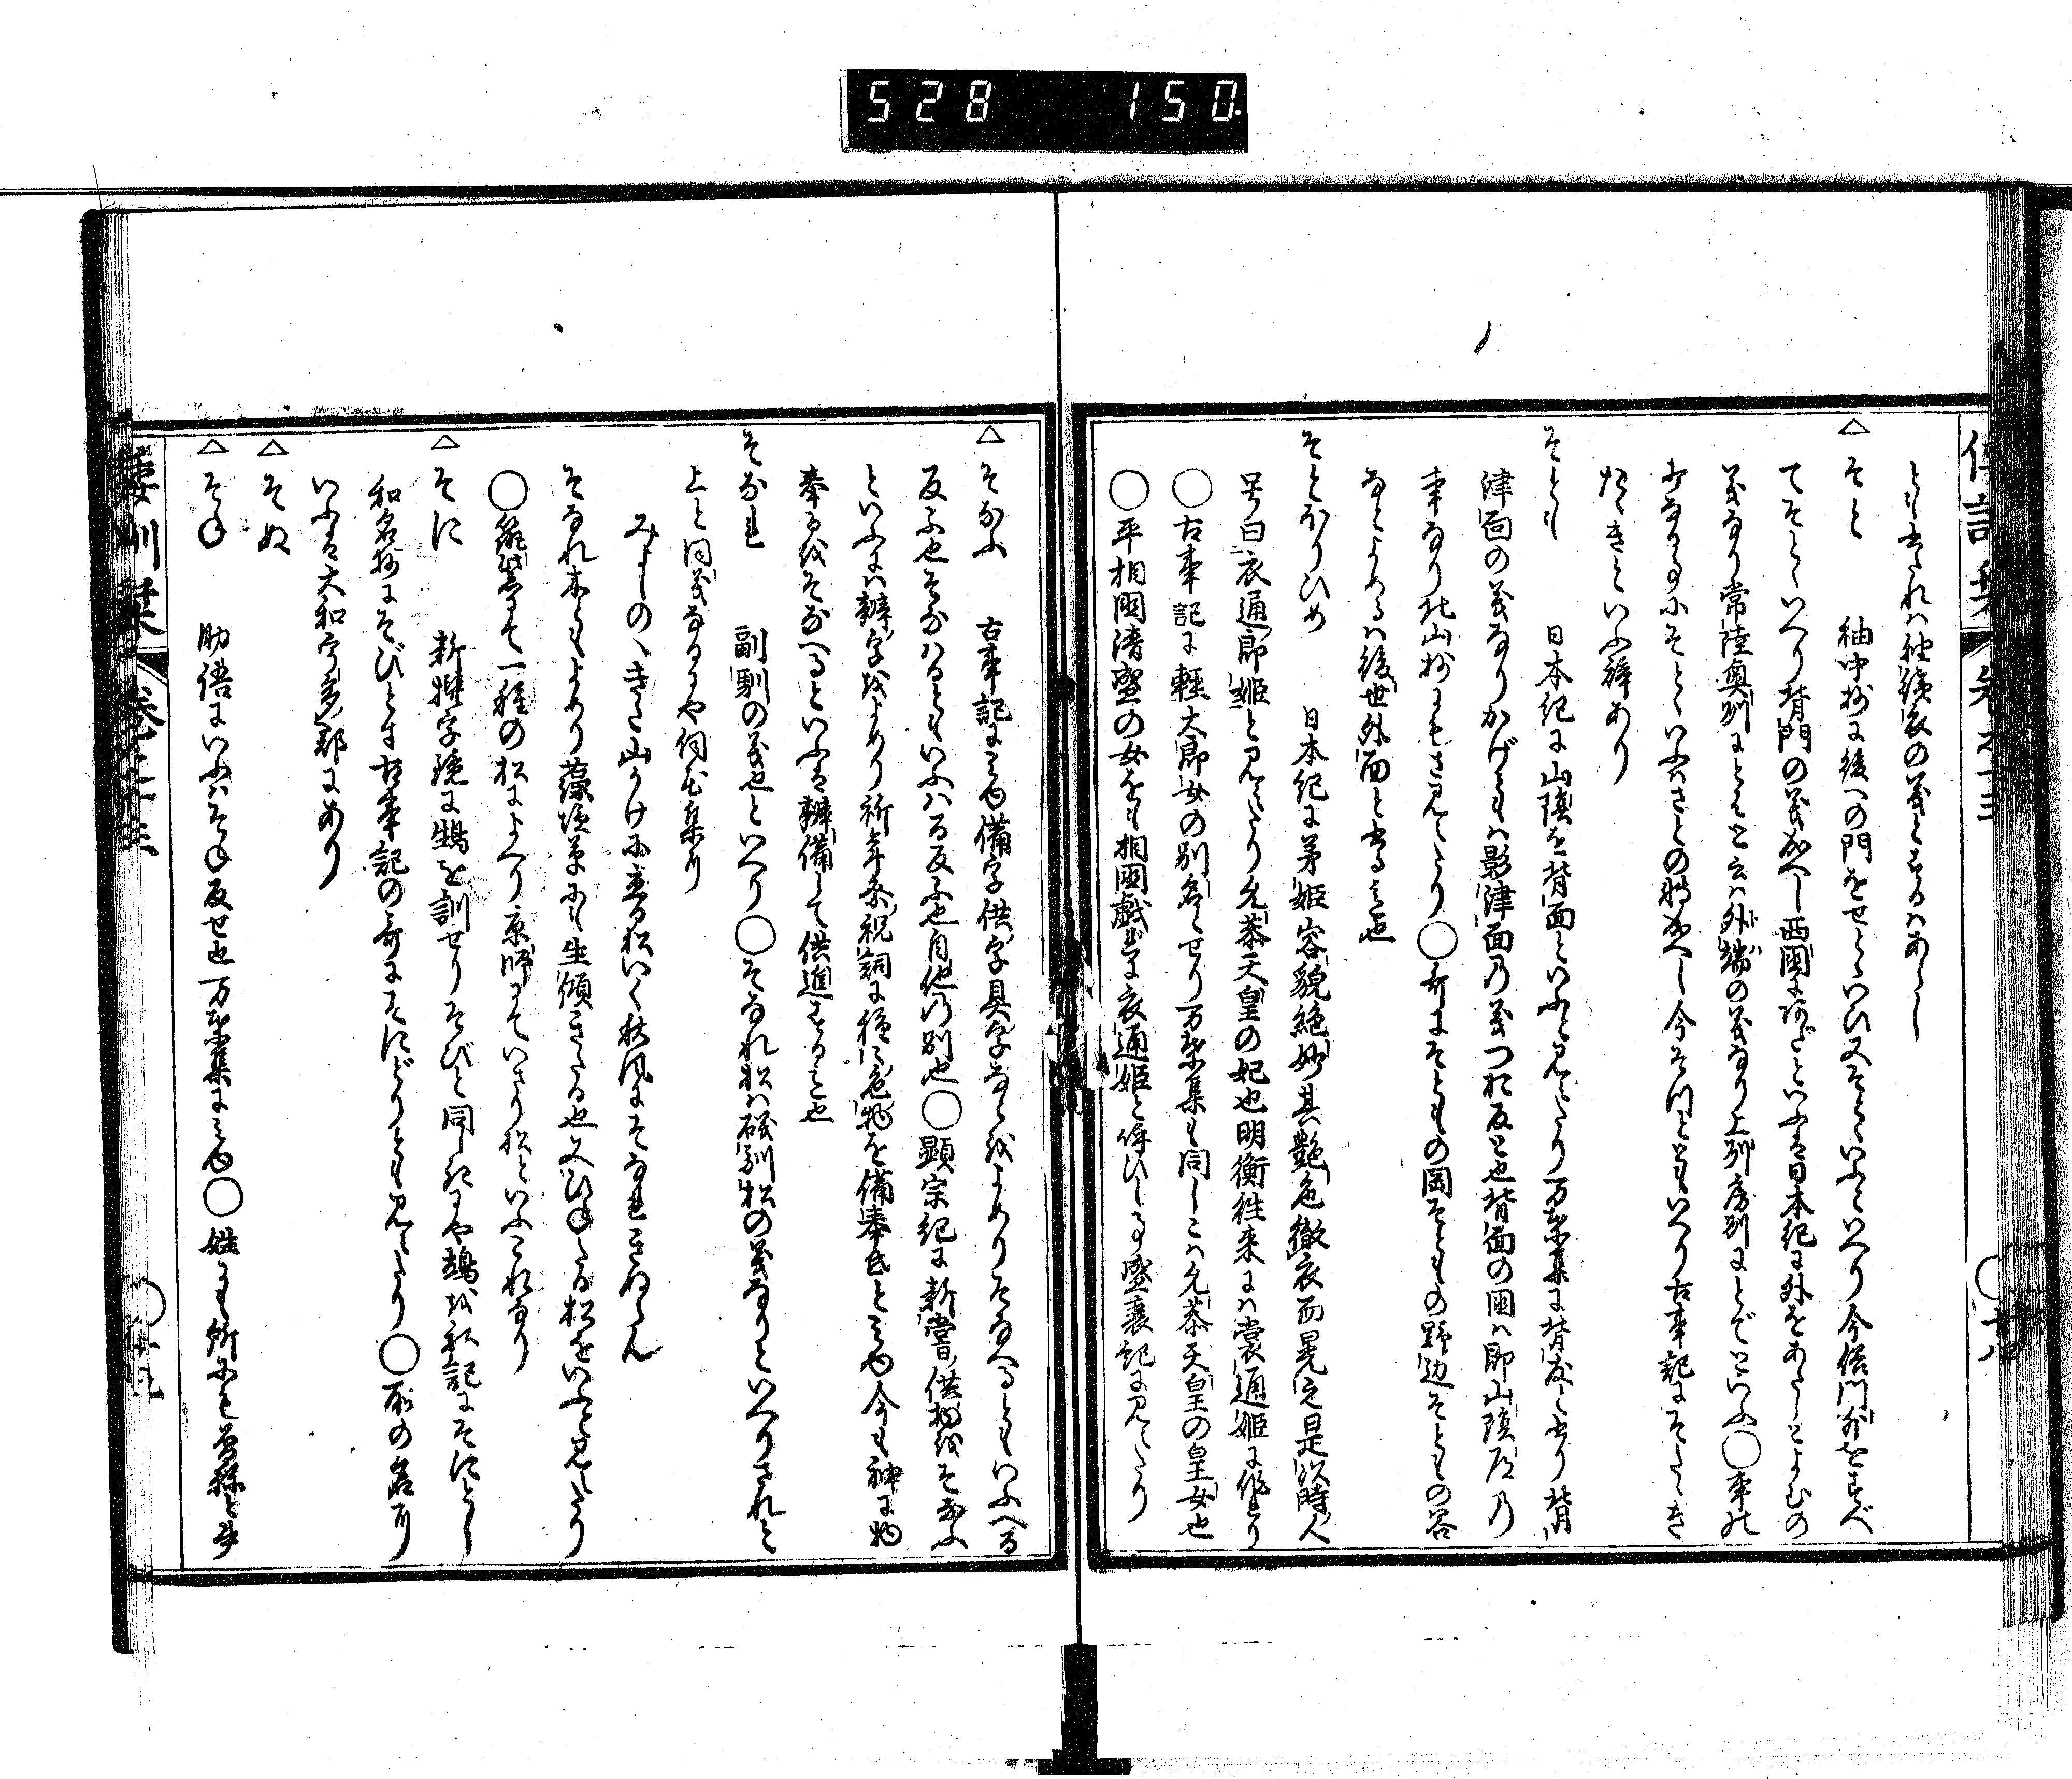 528 150
とも書されは袖演家の義とするはあらし
△ そと 紬中抄に後への門をせとゝいひ又そとゝいふといへり今俗門外をすべ
てそとゝいへり背門の義成へし西国に といふは日本紀に外をあたしとよむの
義なり常陸奥州にとはと云は外端の義なり上州房州にとでといふ◯事の
かなる事にそとゝいふはさとの転成へし今そつとともいへり古事記にそたゝき
たゝきといふ辞あり
そとも 日本紀に山陰を背面といふと見えたり万葉集に背友と書り背
津面の義なりかげともは影津面の義つお反と也背面の国は即山陰道の
事なり北山抄にもさ見えたり◯哥にそともの岡そともの野辺そともの谷
なとよめるは後世外面と書る是也
そとほりひめ 日本紀に弟姫容貌絶妙其艶色徹衣而晃之是以時人
号曰衣通郎姫と見えたり允恭天皇の妃也明衡往来には裳通姫に作れり
◯古事記に軽大郎女の別名とせり万葉集も同しこは允恭天皇の皇女也
◯平相国清盛の女をも相国戯れに衣通姫と呼ひし事盛衰記に見えたり
△ そなふ 古事記にみゆ備字供字具字なとをよめりそなへるともいふへる
反ふ也そなはるともいふはる反ふ也自他の別也◯顕宗紀に新嘗供物をそなふ
といふには辨字をよめり祈年祭祝詞に種々色物を備奉氐とみゆ今も神に物
奉るをそなへるといふは辨備して供進する是也
そなれ 副馴の義也といへり◯そなれ松は磯馴松の義なりといへりされと
上と同義なるにや伺花集に
みよしのゝきさ山かけに立る松いく秋風にそなれきぬらん
そなれ木ともよめり藻塩草にも生傾きたる也又ひねたる松をいふと見えたり
◯ にて一種の松によへり京師にていさり松といふこれなり
△ そに 新撰字鏡に鴗を訓せりそびと同しきにや鵗を私記にそにとし
和名抄にそびとす古事記の哥にそにどりとも見えたり◯所の名に
いふは大和宇多郡にあり
△ そぬ
△ そね 助語にいふはそね反せ也万葉集にみゆ◯姓にも所にも曽祢と書